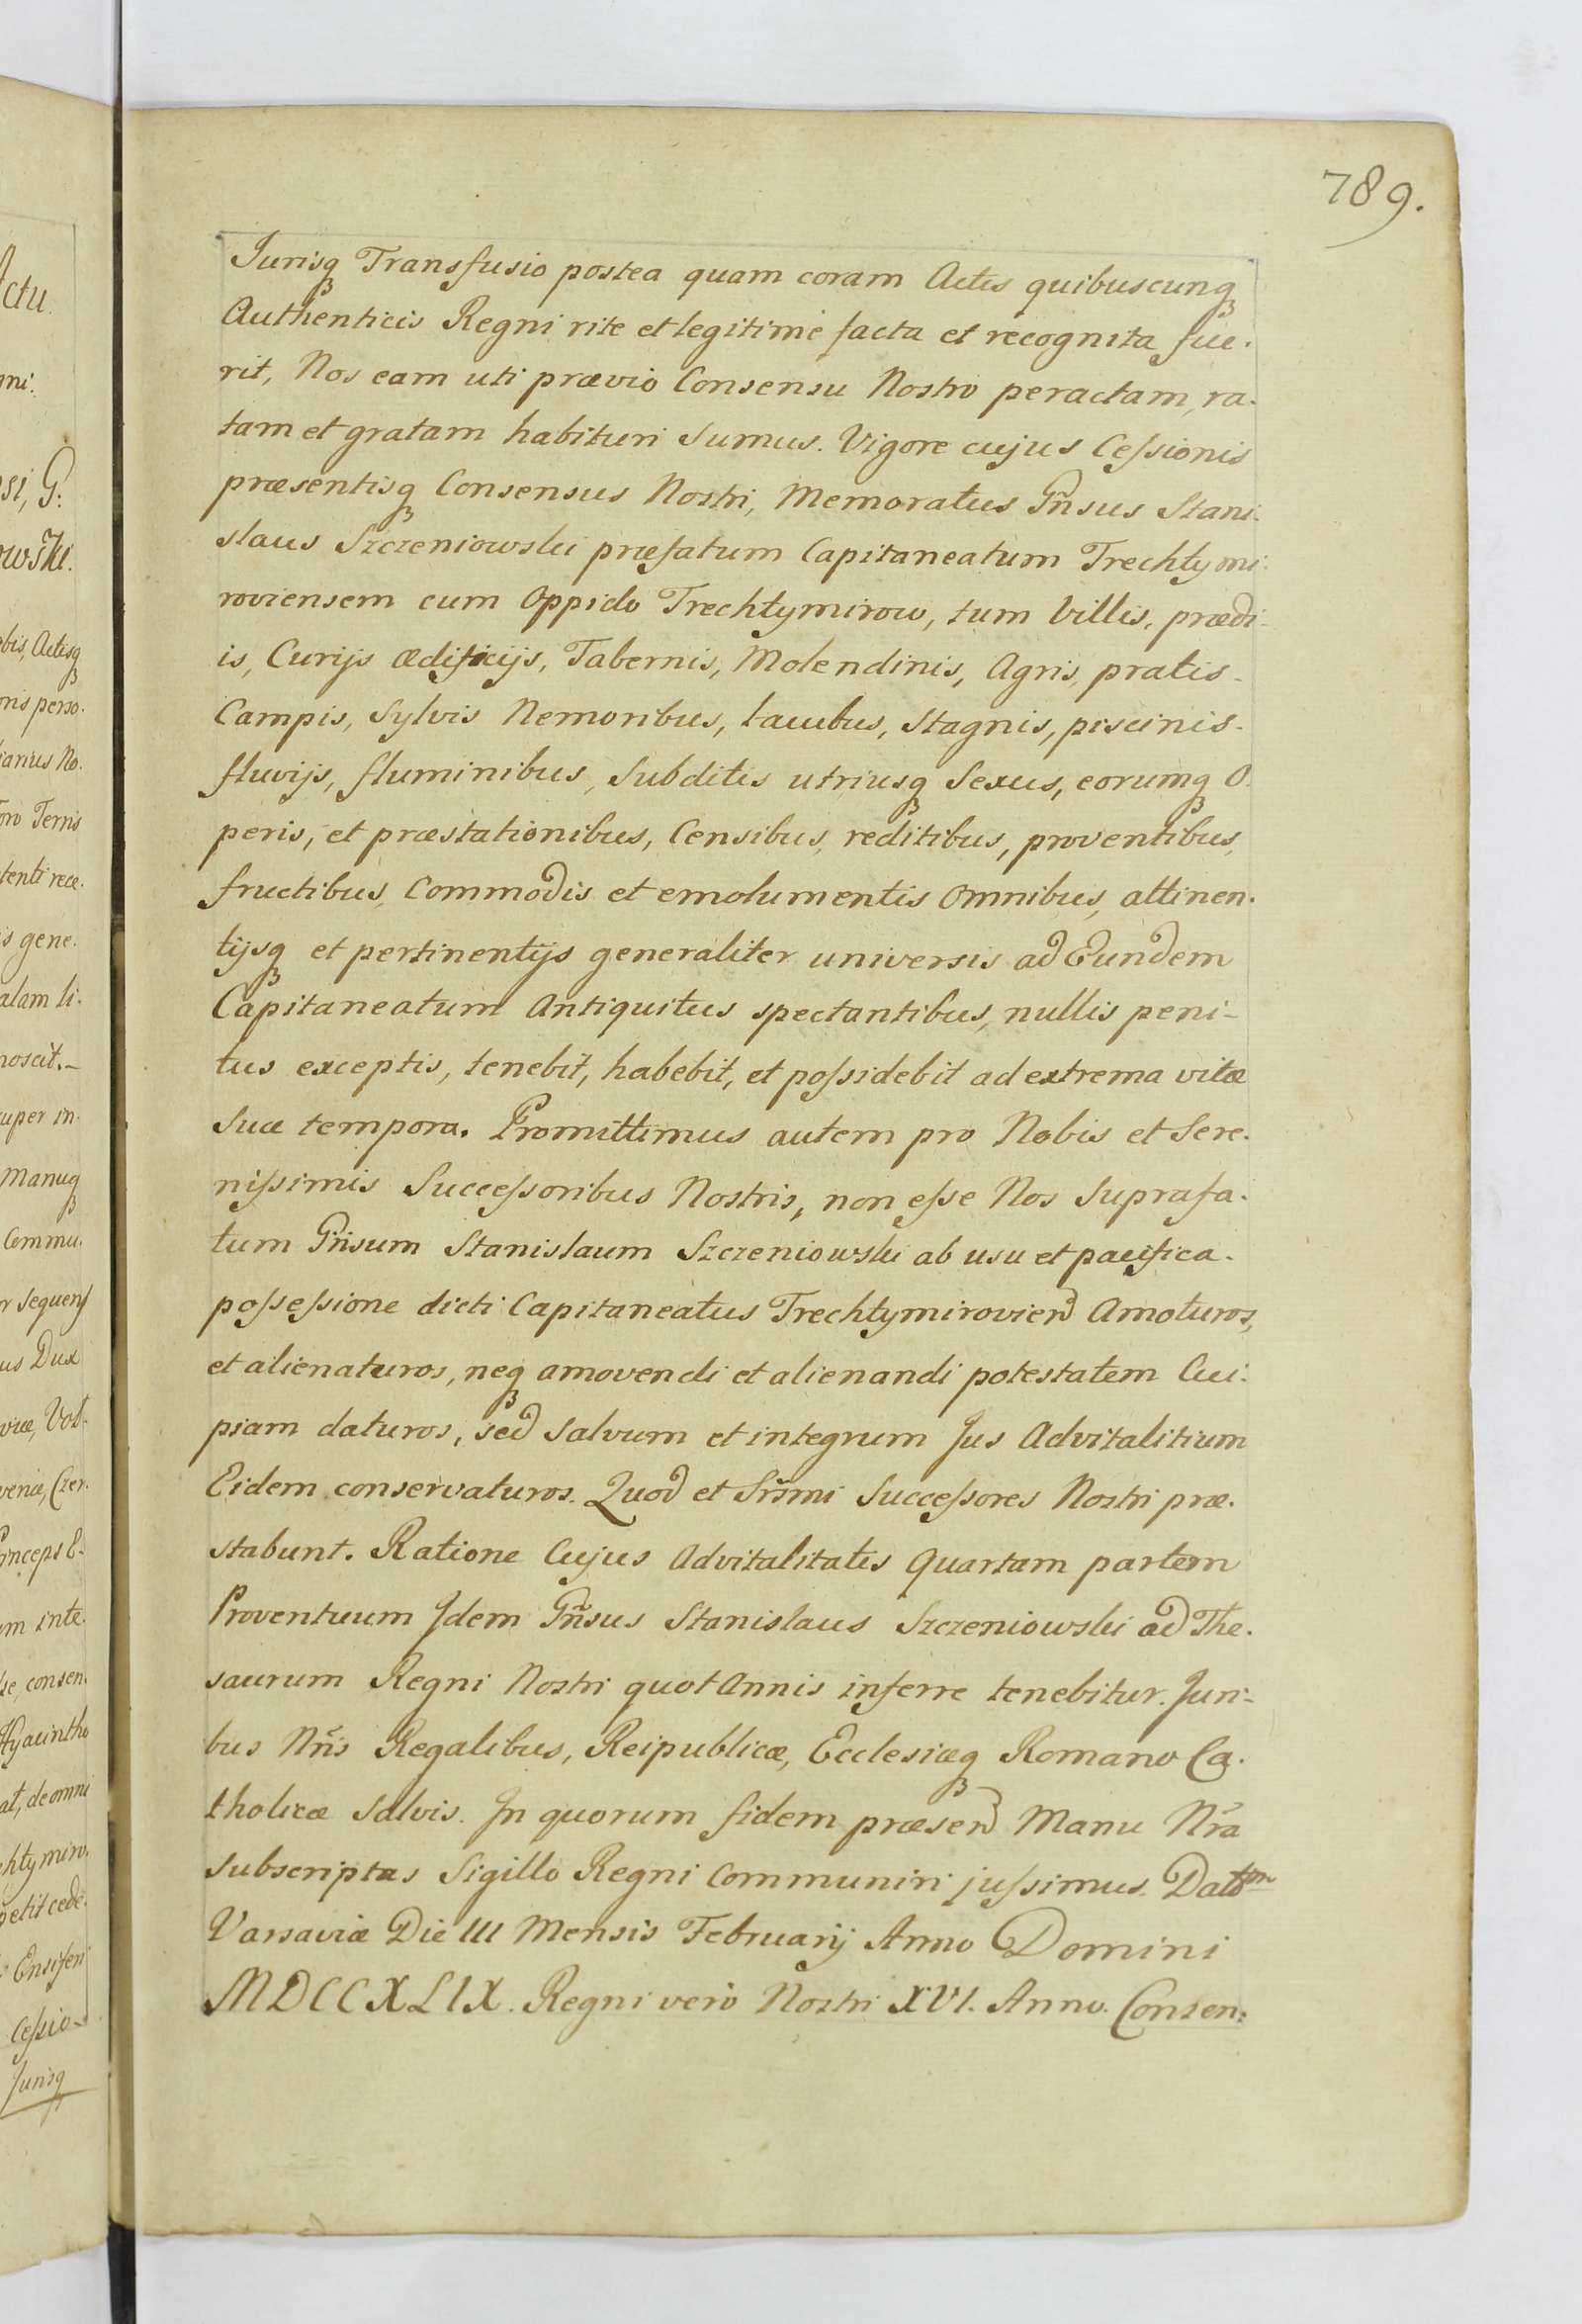 789.
Jurisq₃ Transfusio postea quam coram Actis quibuscunq₃
Authenticis Regni rite et legitimè facta et recognita fue.
rit, Nos eam uti prævio Consensu Nostro peractam, ra.
tam et gratam habituri sumus. Vigore cujus Cessionis
præsentisq₃ Consensus Nostri, Memoratus Gñsus Stani.
slaus Szczeniowski præfatum Capitaneatum Trechtymi.
roviensem cum Oppido Trechtymirow, tum Villis, prædi.
is, Curijs ædificijs, Tabernis, Molendinis, Agris, pratis.
Campis, Sylvis Nemoribus, lacubus, Stagnis, piscinis.
fluvijs, fluminibus, Subditis utriusq₃ Sexus, eorumq₃ O.
peris, et præstationibus, Censibus, reditibus, proventibus,
fructibus, Commodis et emolumentis omnibus, attinen.
tijsq₃ et pertinentijs generaliter universis ad Eundem
Capitaneatum Antiquitus spectantibus, nullis peni-
tus exceptis, tenebit, habebit, et possidebit ad extrema vitæ
suæ tempora. Promittimus autem pro Nobis et Sere.
nissimis Successoribus Nostris, non esse Nos suprafa.
tum Gñsum Stanislaum Szczeniowski ab usu et pacifica.
possessione dicti Capitaneatus Trechtymirovien̄ Amoturos,
et alienaturos, neq₃ amovendi et alienandi potestatem Cui.
piam daturos, sed salvum et integrum Jus Advitalitium
Eidem conservaturos. Quod et Srm̃i Successores Nostri præ.
stabunt. Ratione Cujus Advitalitatis Quartam partem
Proventuum Jdem Gñsus Stanislaus Szczeniowski ad The.
saurum Regni Nostri quot Annis inferre tenebitur. Juri-
bus Nr̃is Regalibus, Reipublicæ, Ecclesiæq₃ Romano Ca.
tholicæ salvis. Jn quorum fidem præsen̄ Manu Nr̃a
subscriptas Sigillo Regni Communiri jussimus. Datt^m
Varsaviæ Die III Mensis Februarij Anno Domini
MDCCXLIX. Regni verò Nostri XVI. Anno. Consen: